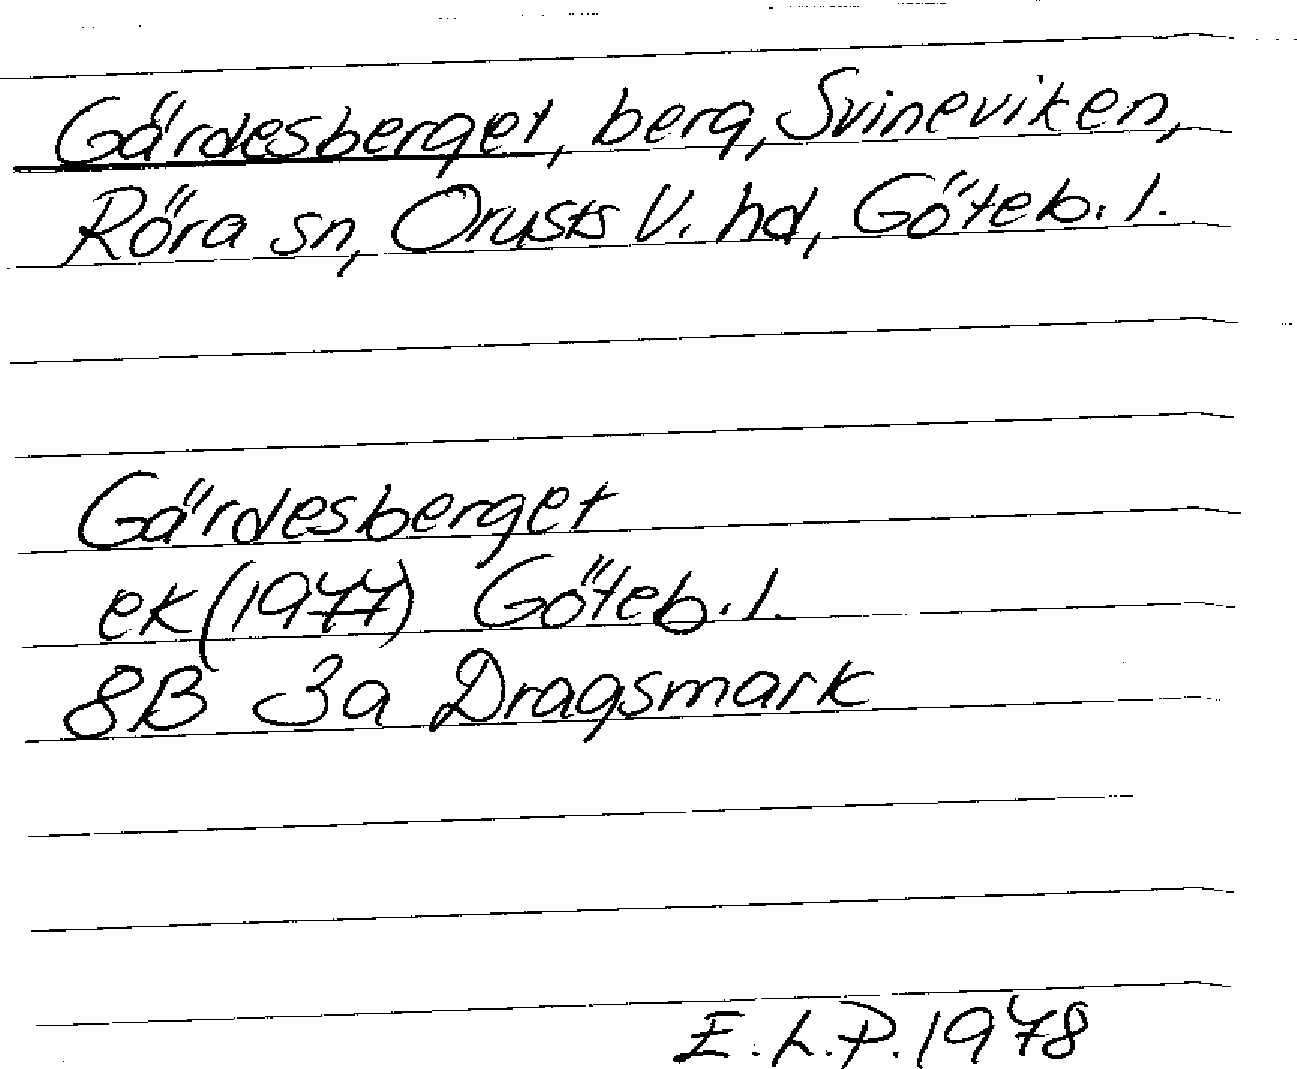 Gärdesberget, berg, Svineviken,
Röra sn, Orusts V. hd, Göteb. l.
Gärdesberget
ek (1977) Göteb. l.
8B 3a Dragsmark
E.L.P. 1978